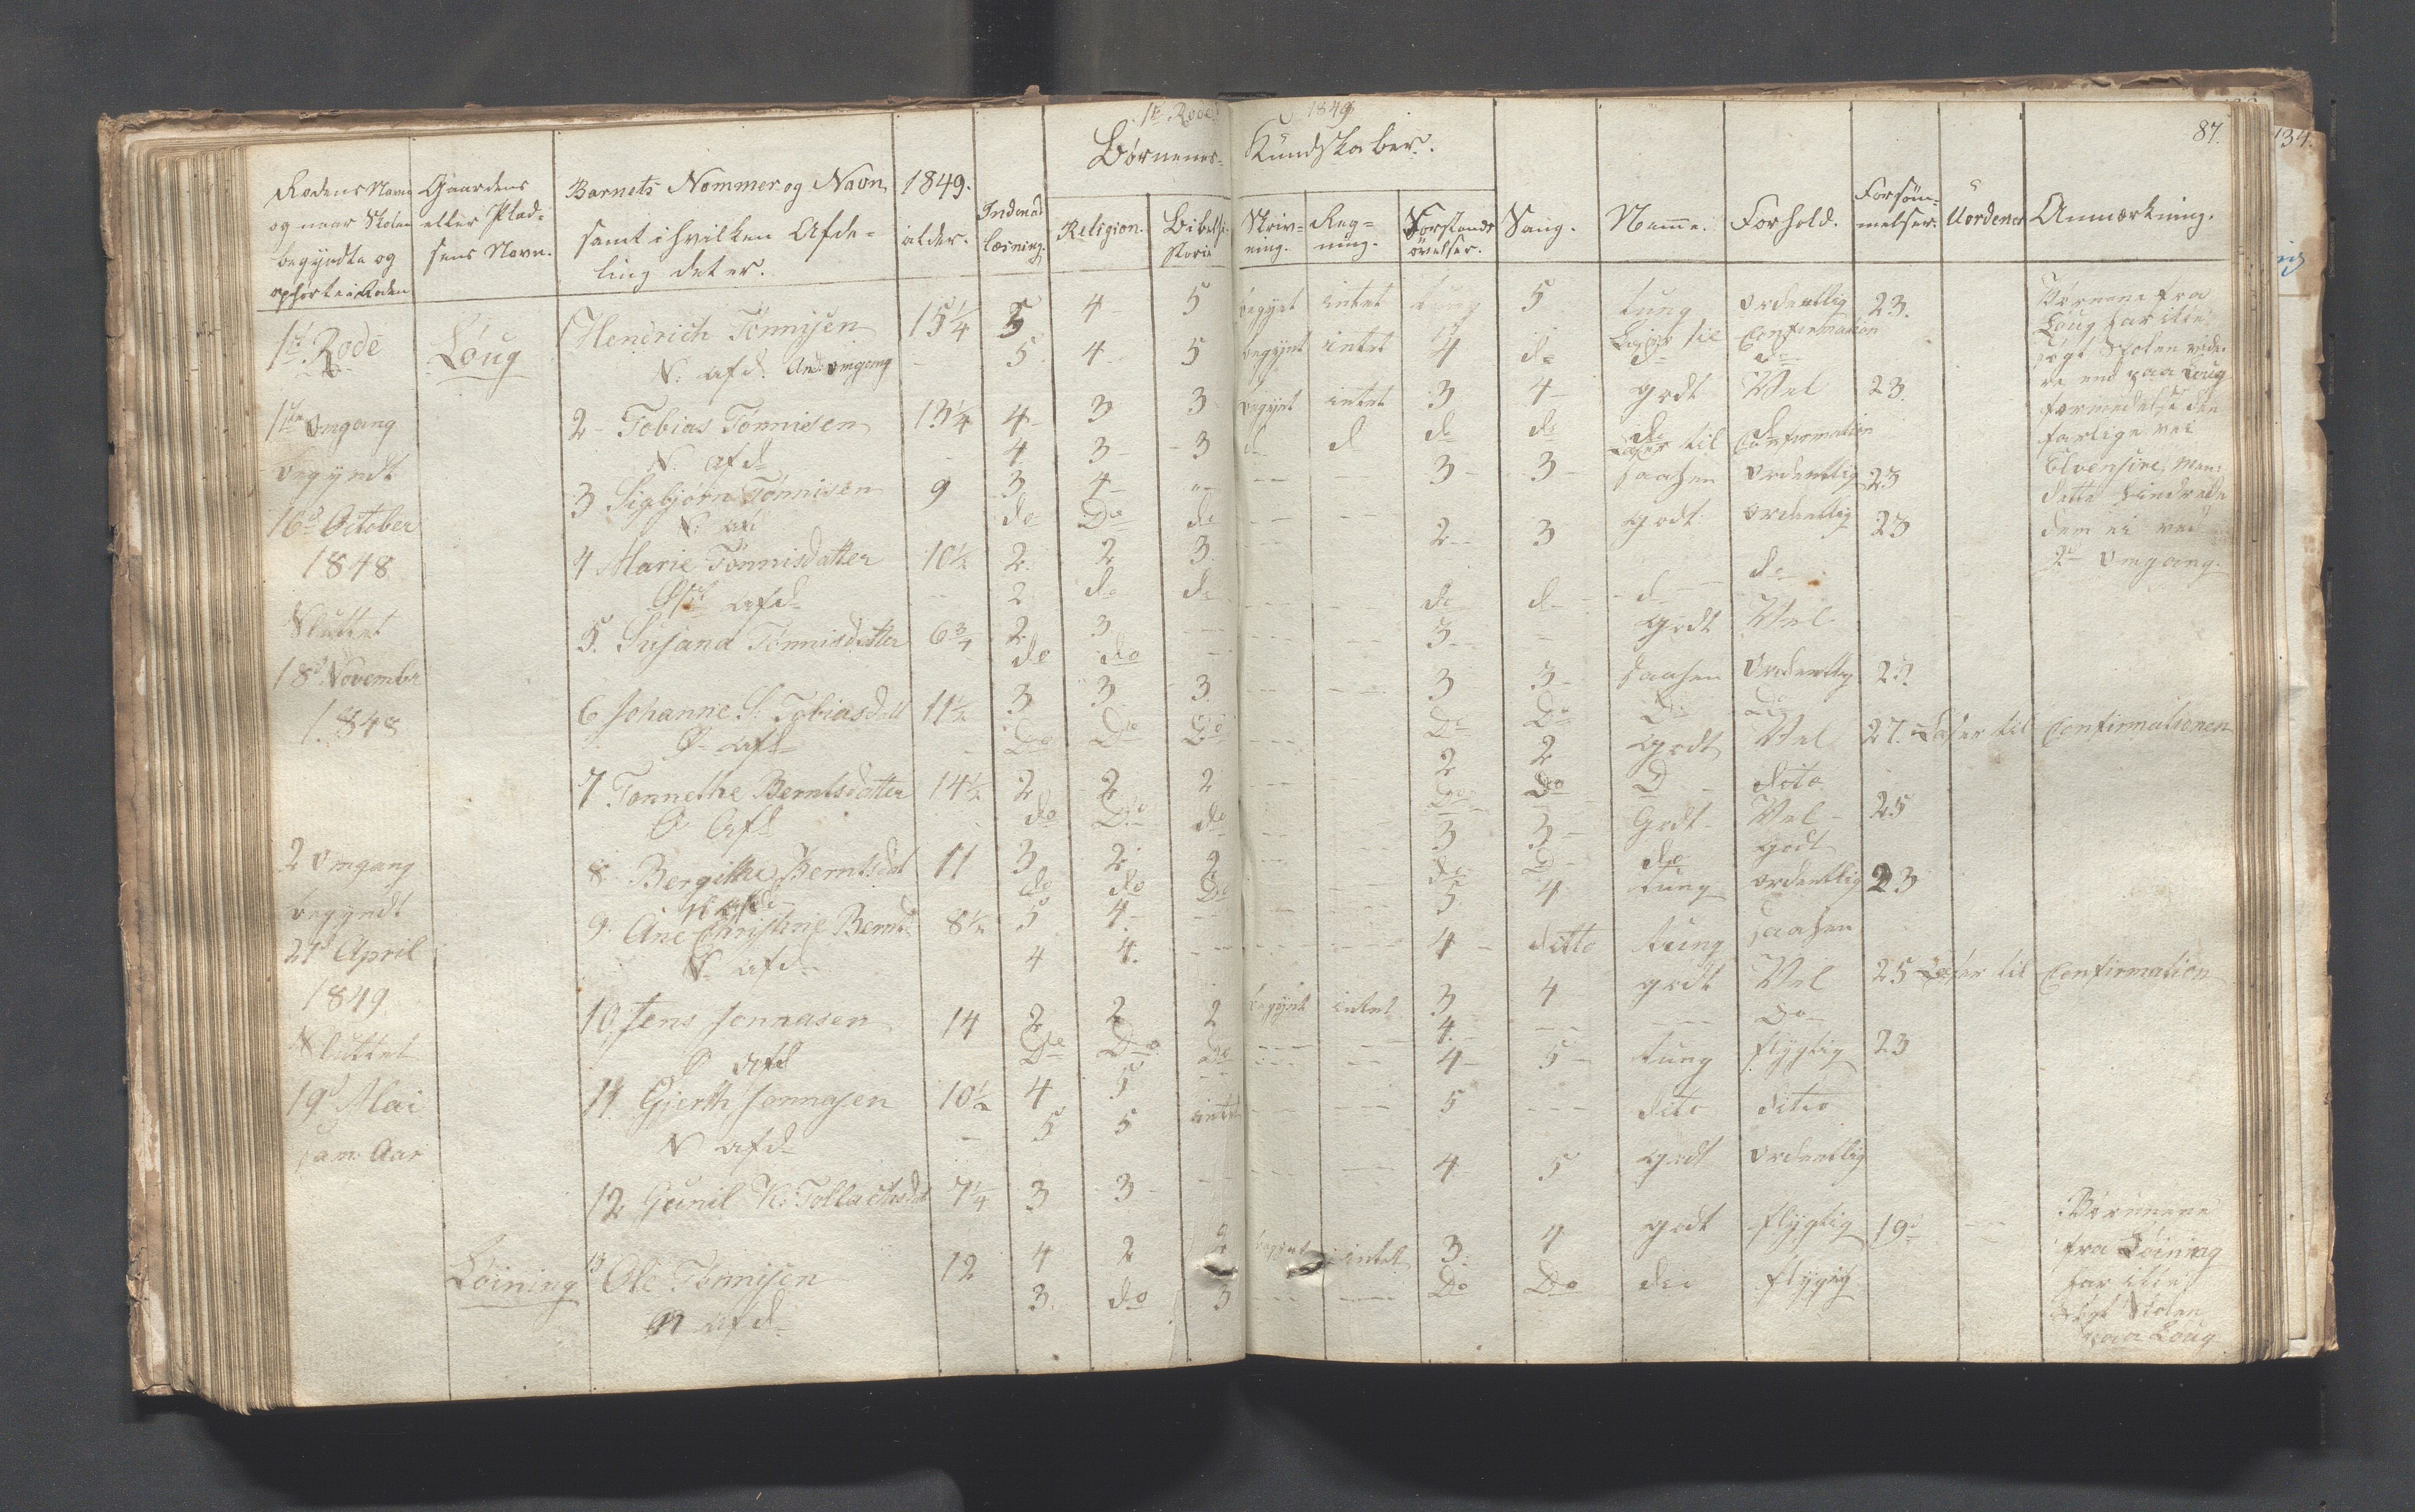 1te Rode 1849
87.
134.
Børnenes Kundskaber.
Rodens Navn og naar Skolen begyndte og ophørte i Roden
Gaardens eller Pladsens Navn.
Barnets Nommer og Navn, samt i hvilken Afdeling det er.
1849. alder.
Religion.
Skrivning.
Regning.
Forstands øvelser.
Sang.
Nemme.
Forhold.
Forsømmelser.
Uordener
Anmærkning.
1te Rode Loug 1 Henrich Tønnisen 15 1/4 5 4 5 begynt intet tung 5 tung Ordentlig 23.
N. afd. And omgang 5 4 5 begynt intet 4 do
1ste Omgang 2 Tobias Tønnisen 13 1/4 4 3 3 begynt intet 3 4 godt Vel 23.
N. afd 4 3 3 d d do do do
Læser til Confirmation
begyndt 3 Sigbjørn Tønnisen 9 3 4 3 3 saahen Ordentlig 23
N. afd do Do do
16d October 4 Marie Tønnisdatter 10 1/2 2 2 3 2 3 godt Ordentlig 23
1848 afd 2 do do do d d do
Sluttet 5. Susana Tønnisdatter 6 3/4 2 3 3 godt Vel
do do
18d Novembr 6 Johanne S. Tobiasdatt 11 1/2 3 3 3 3 3 saahen Ordentlig 23.
1848 Ø. afd Do Do Do Do Do Do Do
7 Tønnethe Berntsdatter 14 1/2 2 2 2 2 2 godt Vel 27. Læser til Confirmationen
Ø Afd do Do do Do Do D dito
2 Omgang 8 Bergithe Berntsdat 11 3 2 2 3 3 Godt Vel 25
N afd do do Do do D do godt
begyndt 9. Ane Christine Bernts 8 1/2 5 4 5 4 tung ordentlig 23
21d April N. afd 4 4. 4 ditto tung saahen
1849 10 Jens Jonnasen 14 2 2 2 begynt intet 3 4 godt Vel 25 Læser til Confirmation
Sluttet Ø afd Do Do Do 4. Do
19d Mai 11 Gjerth Jonnasen 10 1/2 4 5 4 5 tung flygtig 23
sam. Aar N afd 5 5 intet 5 dito ditto
12 Gunil K: Tollachsdat 7 1/4 3 3 4 5 godt ordentlig
Løining 13 Ole Tønnisen 12 4 2 2 intet 3. 4 godt flygtig 19
N afd 3. do 3 Do Do flygtig
Børnene fra
Loug har ikke
søgt Skolen vide-
re end paa Loug
formedelst den
farlige vei
dette hindrede
dem ei ved
2den Omgang.
Børnene
fra Løining
har ikke
søgt Skolen
paa Loug